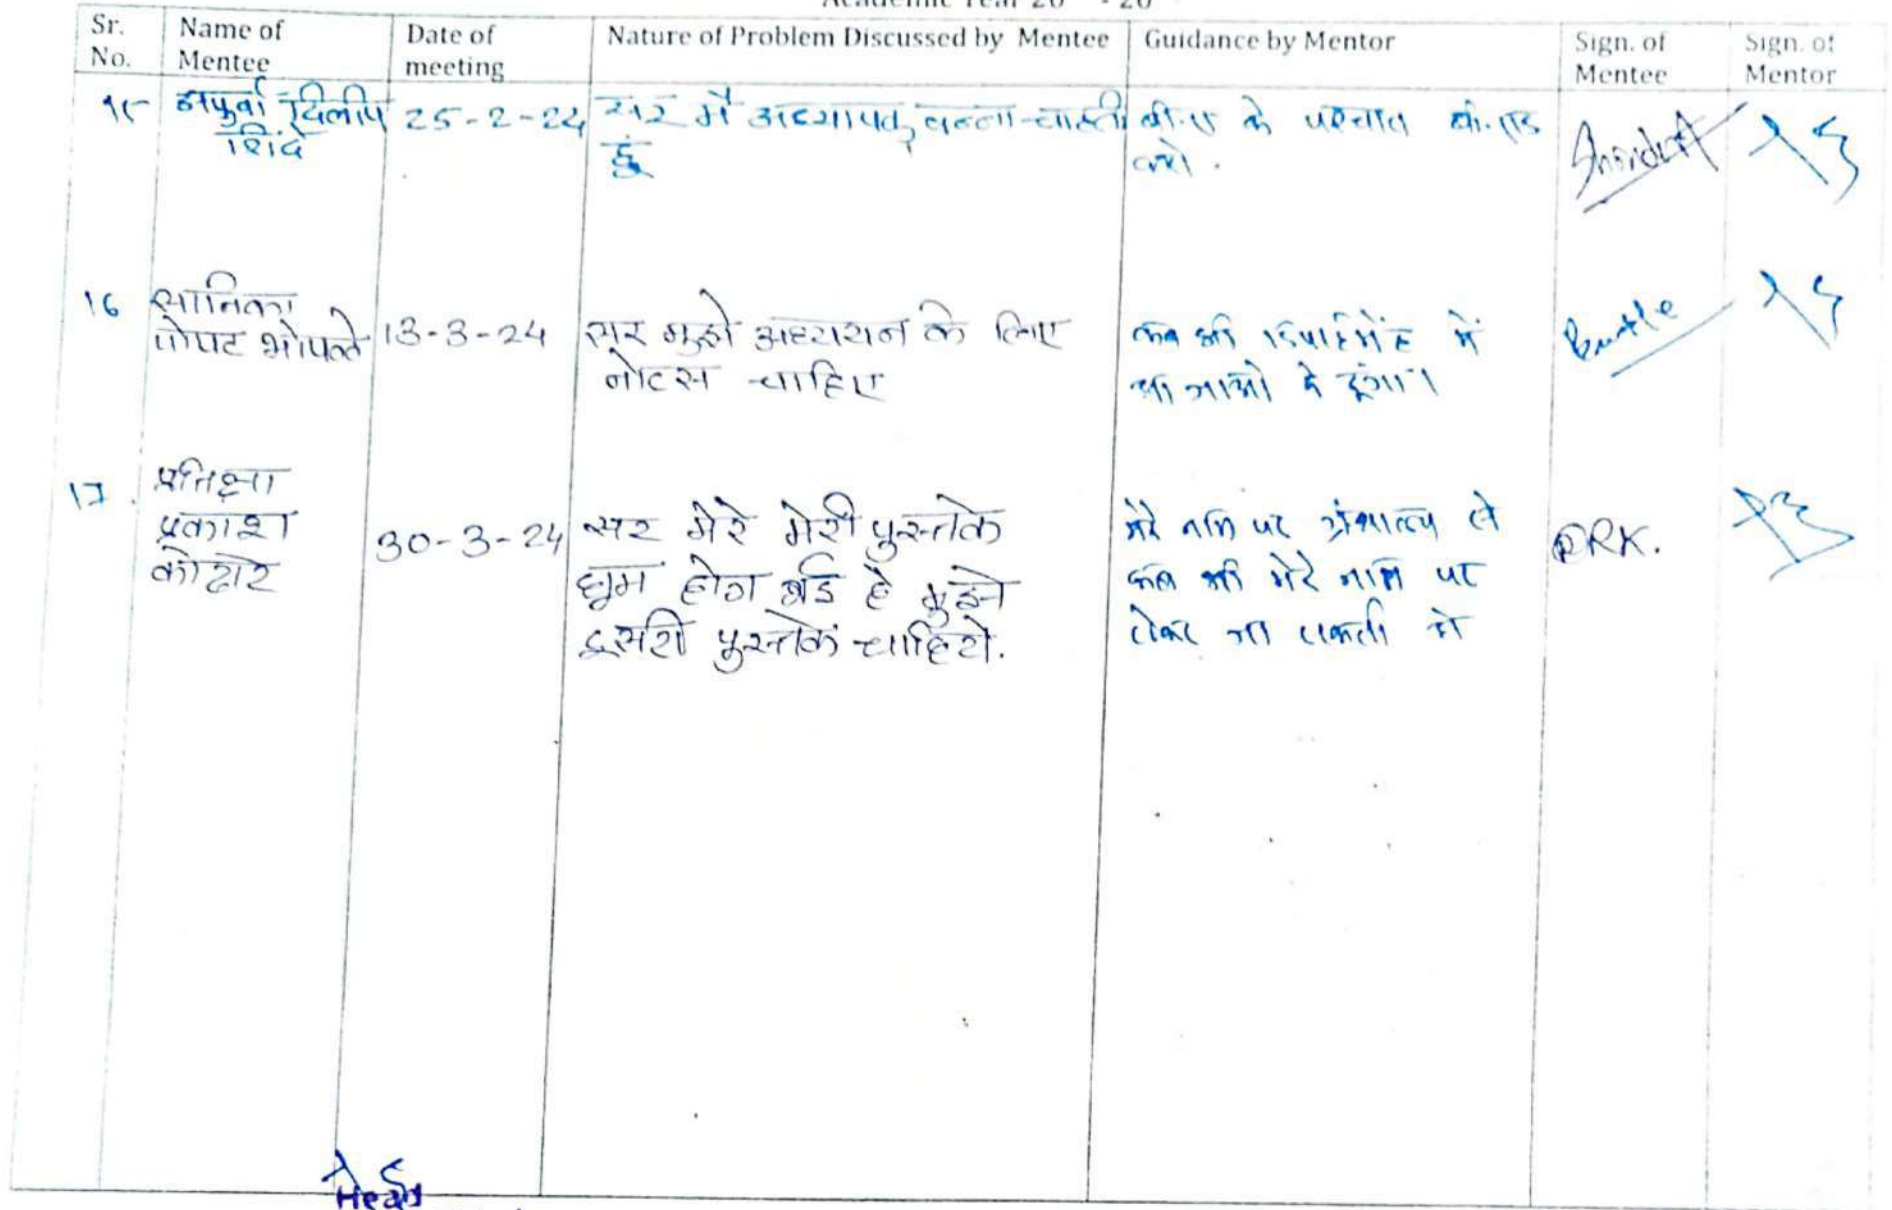 Academic Year 20 - 20
Sr. No.
Name of Mentee
Date of meeting
Nature of Problem Discussed by Mentee
Guidance by Mentor
Sign. of Mentee
Sign. of Mentor
१५
अपुर्वा दिलीप
शिंदे
25-2-24
सर मै अध्यापक बनना चाहती
हूं
बी.ए के पश्चात बी.एड
करो.
16
सानिका
पोपट भोपले
13-3-24
सर मुझे अध्ययन के लिए
नोटस चाहिए
कब भी डिपार्टमेंट में
आ जाओ दे दूंगा।
17.
प्रतिक्षा
प्रकाश
कोढारे
30-3-24
सर मेरे मेरी पुस्तके
घुम होग है मुझे
दुसरी पुस्तकें चाहिये.
मेरे नाम पर ग्रंथालय से
कब भी मेरे नाम पर
लेकर जा सकती हो
PRK.
Head